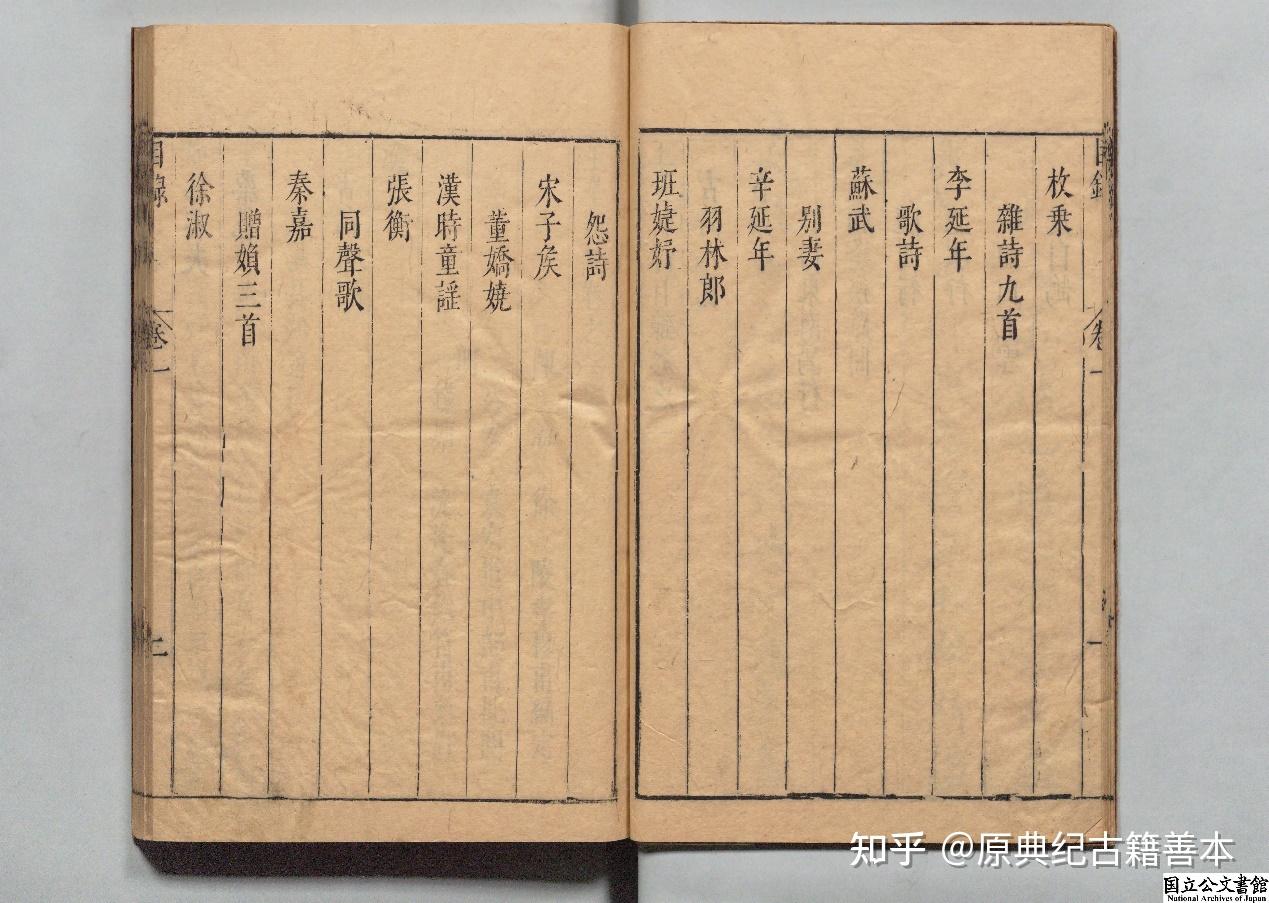 目錄 卷一 一
枚乗
雜詩九首
李延年
歌詩
蘇武
别妻
辛延年
羽林郎
班婕妤
怨詩
宋子矦
董嬌嬈
漢時童謡
張衡
同聲歌
秦嘉
贈婦三首
徐淑
目錄 卷一
知乎 @原典纪古籍善本
国立公文書館
National Archives of Japan